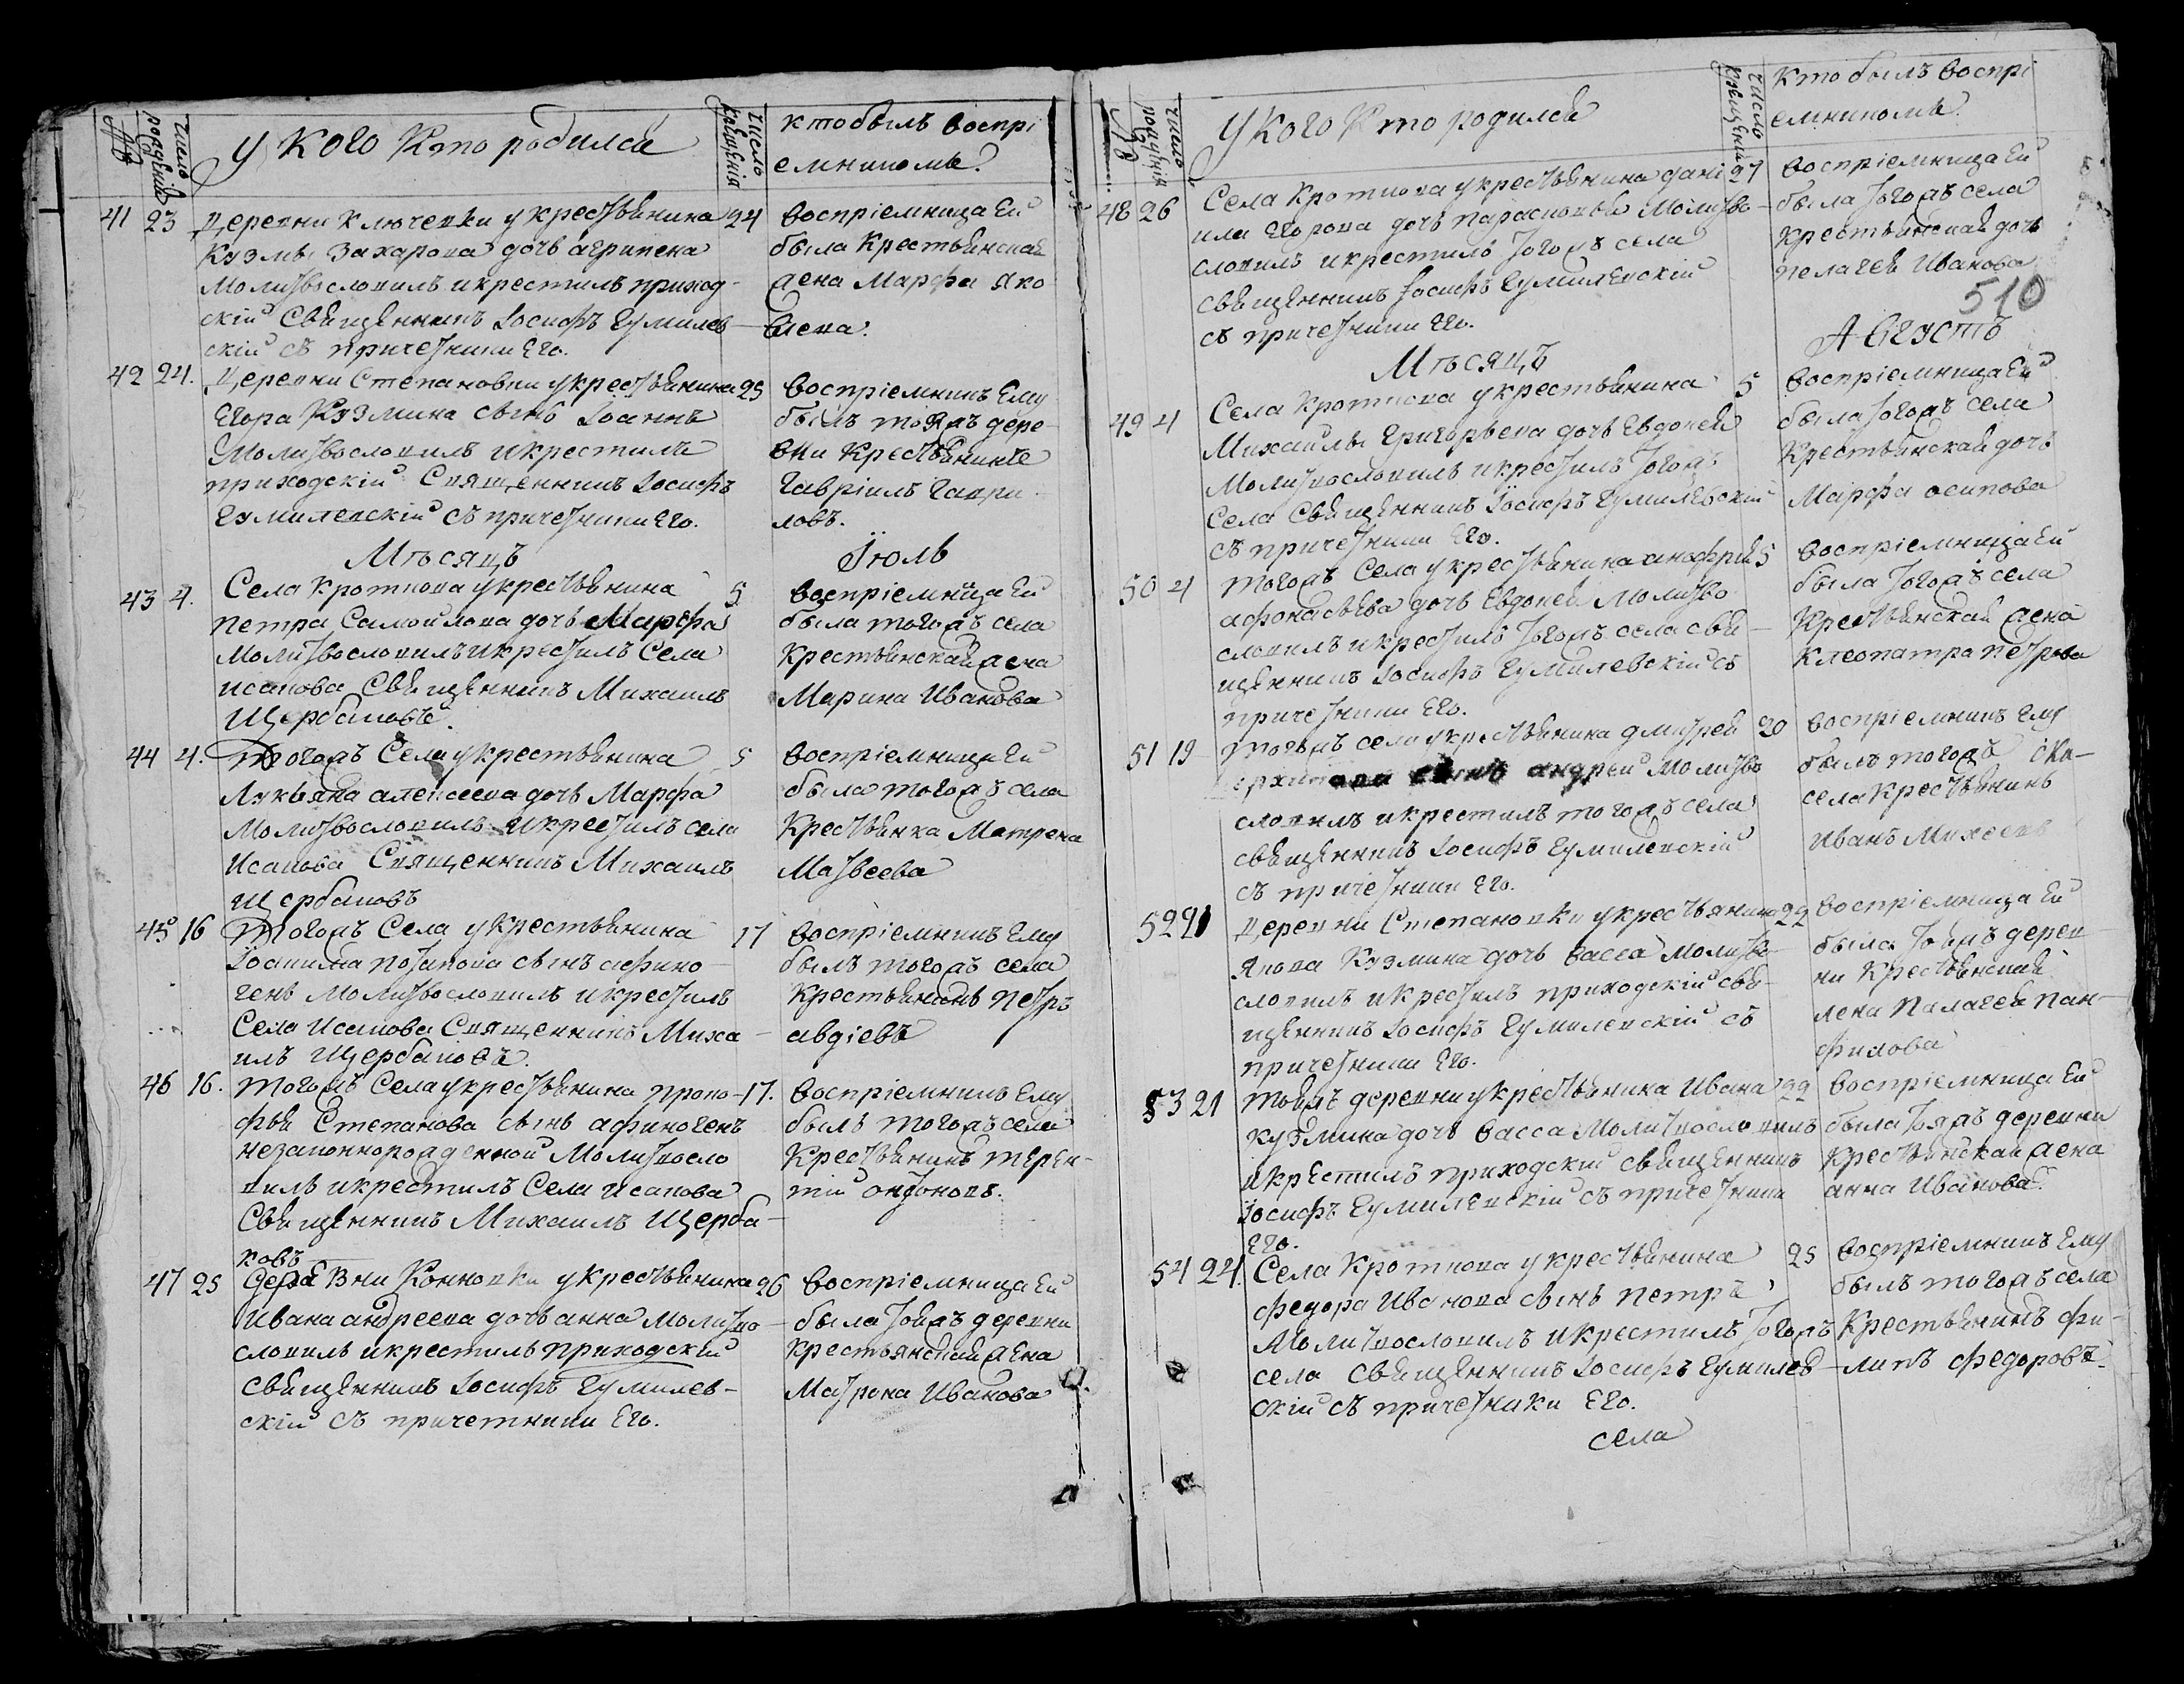 №
число рождения
У кого Кто родился
число крещенія
кто былъ воспрі
емникомъ?
41 23 Деревни Ключевки у крестьянина 24
Кузмы Захарова дочь агрипена
Молитвословилъ и крестилъ приход-
скій Священникъ Іосифъ Гумилев-
скій съ причетники Его.
воспріемница Ей
была Крестьянская
жена Марфа Яко
влева.
42 24. Деревни Степановки у крестьянина 25
Егора Кузмина сынъ Іоаннъ
Молитвословилъ и крестилъ
приходскій Священникъ Іосифъ
Гумилевскій съ причетники Его.
воспріемникъ Ему
былъ тояжъ дере-
вни Крестьянинъ
Гавріилъ Гаври-
ловъ.
Мѣсяцъ Іюль
43 4. Села Кроткова у крестьянина 5
Петра Самойлова дочь Марфа
Молитвословилъ и крестилъ Села
Исакова Священникъ Михаилъ
Щербаковъ.
воспріемница Ей
была тогожъ села
Крестьянская жена
Марина Иванова
44 4. Тогожъ Села у крестьянина 5
Лукьяна алексеева дочь Марфа
Молитвословилъ и крестилъ села
Исакова Священникъ Михаилъ
Щербаковъ
воспріемница Ей
была тогожъ села
Крестьянка Матрена
Матвеева
45 16 Тогожъ Села у крестьянина 17
Іоакима Потапова сынъ афино-
генъ Молитвословилъ и крестилъ
Села Исакова Священникъ Миха-
илъ Щербаковъ.
воспріемникъ Ему
былъ тогожъ села
Крестьянинъ Петръ
авдіевъ
46 16. Тогожъ Села у крестьянина Проко- 17.
фья Степанова сынъ афиногенъ
незаконнорожденной Молитвосло
вилъ и крестилъ Села Исакова
Священникъ Михаилъ Щерба-
ковъ
воспріемникъ Ему
былъ тогожъ села
Крестьянинъ терен-
тій антоновъ.
47 25 Деревни Конновки у крестьянина 26
Ивана андреева дочь анна Молитво-
словилъ и крестилъ приходскій
Священникъ Іосифъ Гумилев-
скій съ причетники Его.
воспріемница Ей
была тояжъ деревни
Крестьянская жена
Матрена Иванова
№
число рожденія
У кого Кто родился
число крещенія
кто былъ воспрі
емникомъ
48 26 Села Кроткова у крестьянина дані 27
ила Егорова дочь параскова Молитво-
словилъ и крестилъ тогожъ села
священникъ Іосифъ Гумилевскій
съ причетники Его.
воспріемница Ей
была тогожъ села
Крестьянская дочь
пелагея Иванова
510
Мѣсяцъ Августъ
49 4 Села Кроткова у крестьянина 5
Михаилы Григорьева дочь Евдокея
Молитвословилъ и крестилъ тогожъ
Села Священникъ Іосифъ Гумилевскій
съ причетники Его.
воспріемница Ей
была тогожъ села
Крестьянская дочь
Марфа осипова
50 4 Тогожъ Села у крестьянина анофрія 5
афонасьева дочь Евдокея Молитво
словилъ и крестилъ тогожъ села свя-
щенникъ Іосифъ Гумилевскій съ
причетники Его.
воспріемница Ей
была тогожъ села
Крестьянская жена
Клеопатра петрова
51 19 Тогожъ села у крестьянина дмитрея 20
сынъ андрей Молитво
словилъ и крестилъ тогожъ села
священникъ Іосифъ Гумилевскій
съ причетники Его.
воспріемникъ Ему
былъ тогожъ
села Крестьянинъ
Иванъ Михеевъ
52 21 Деревни Степановки у крестьянина 22
Якова Кузмина дочь Васса Молитво-
словилъ и крестилъ приходскій свя-
щенникъ Іосифъ Гумилевскій съ
причетники Его.
воспріемница Ей
была тояжъ дерев-
ни Крестьянская
жена Палагея Пан-
филова
53 21 Тояжъ деревни у крестьянина Ивана 22
Кузмина дочь Васса Молитвословилъ
и крестилъ приходскій священникъ
Іосифъ Гумилевскій съ причетники
Его.
воспріемница Ей
была тояжъ деревни
Крестьянская жена
анна Иванова.
54 24. Села Кроткова у крестьянина 25
федора Иванова сынъ петръ
Молитвословилъ и крестилъ тогожъ
села Священникъ Іосифъ Гумилев-
скій съ причетники Его.
воспріемникъ Ему
былъ тогожъ села
Крестьянинъ фи-
липъ федоровъ.
села